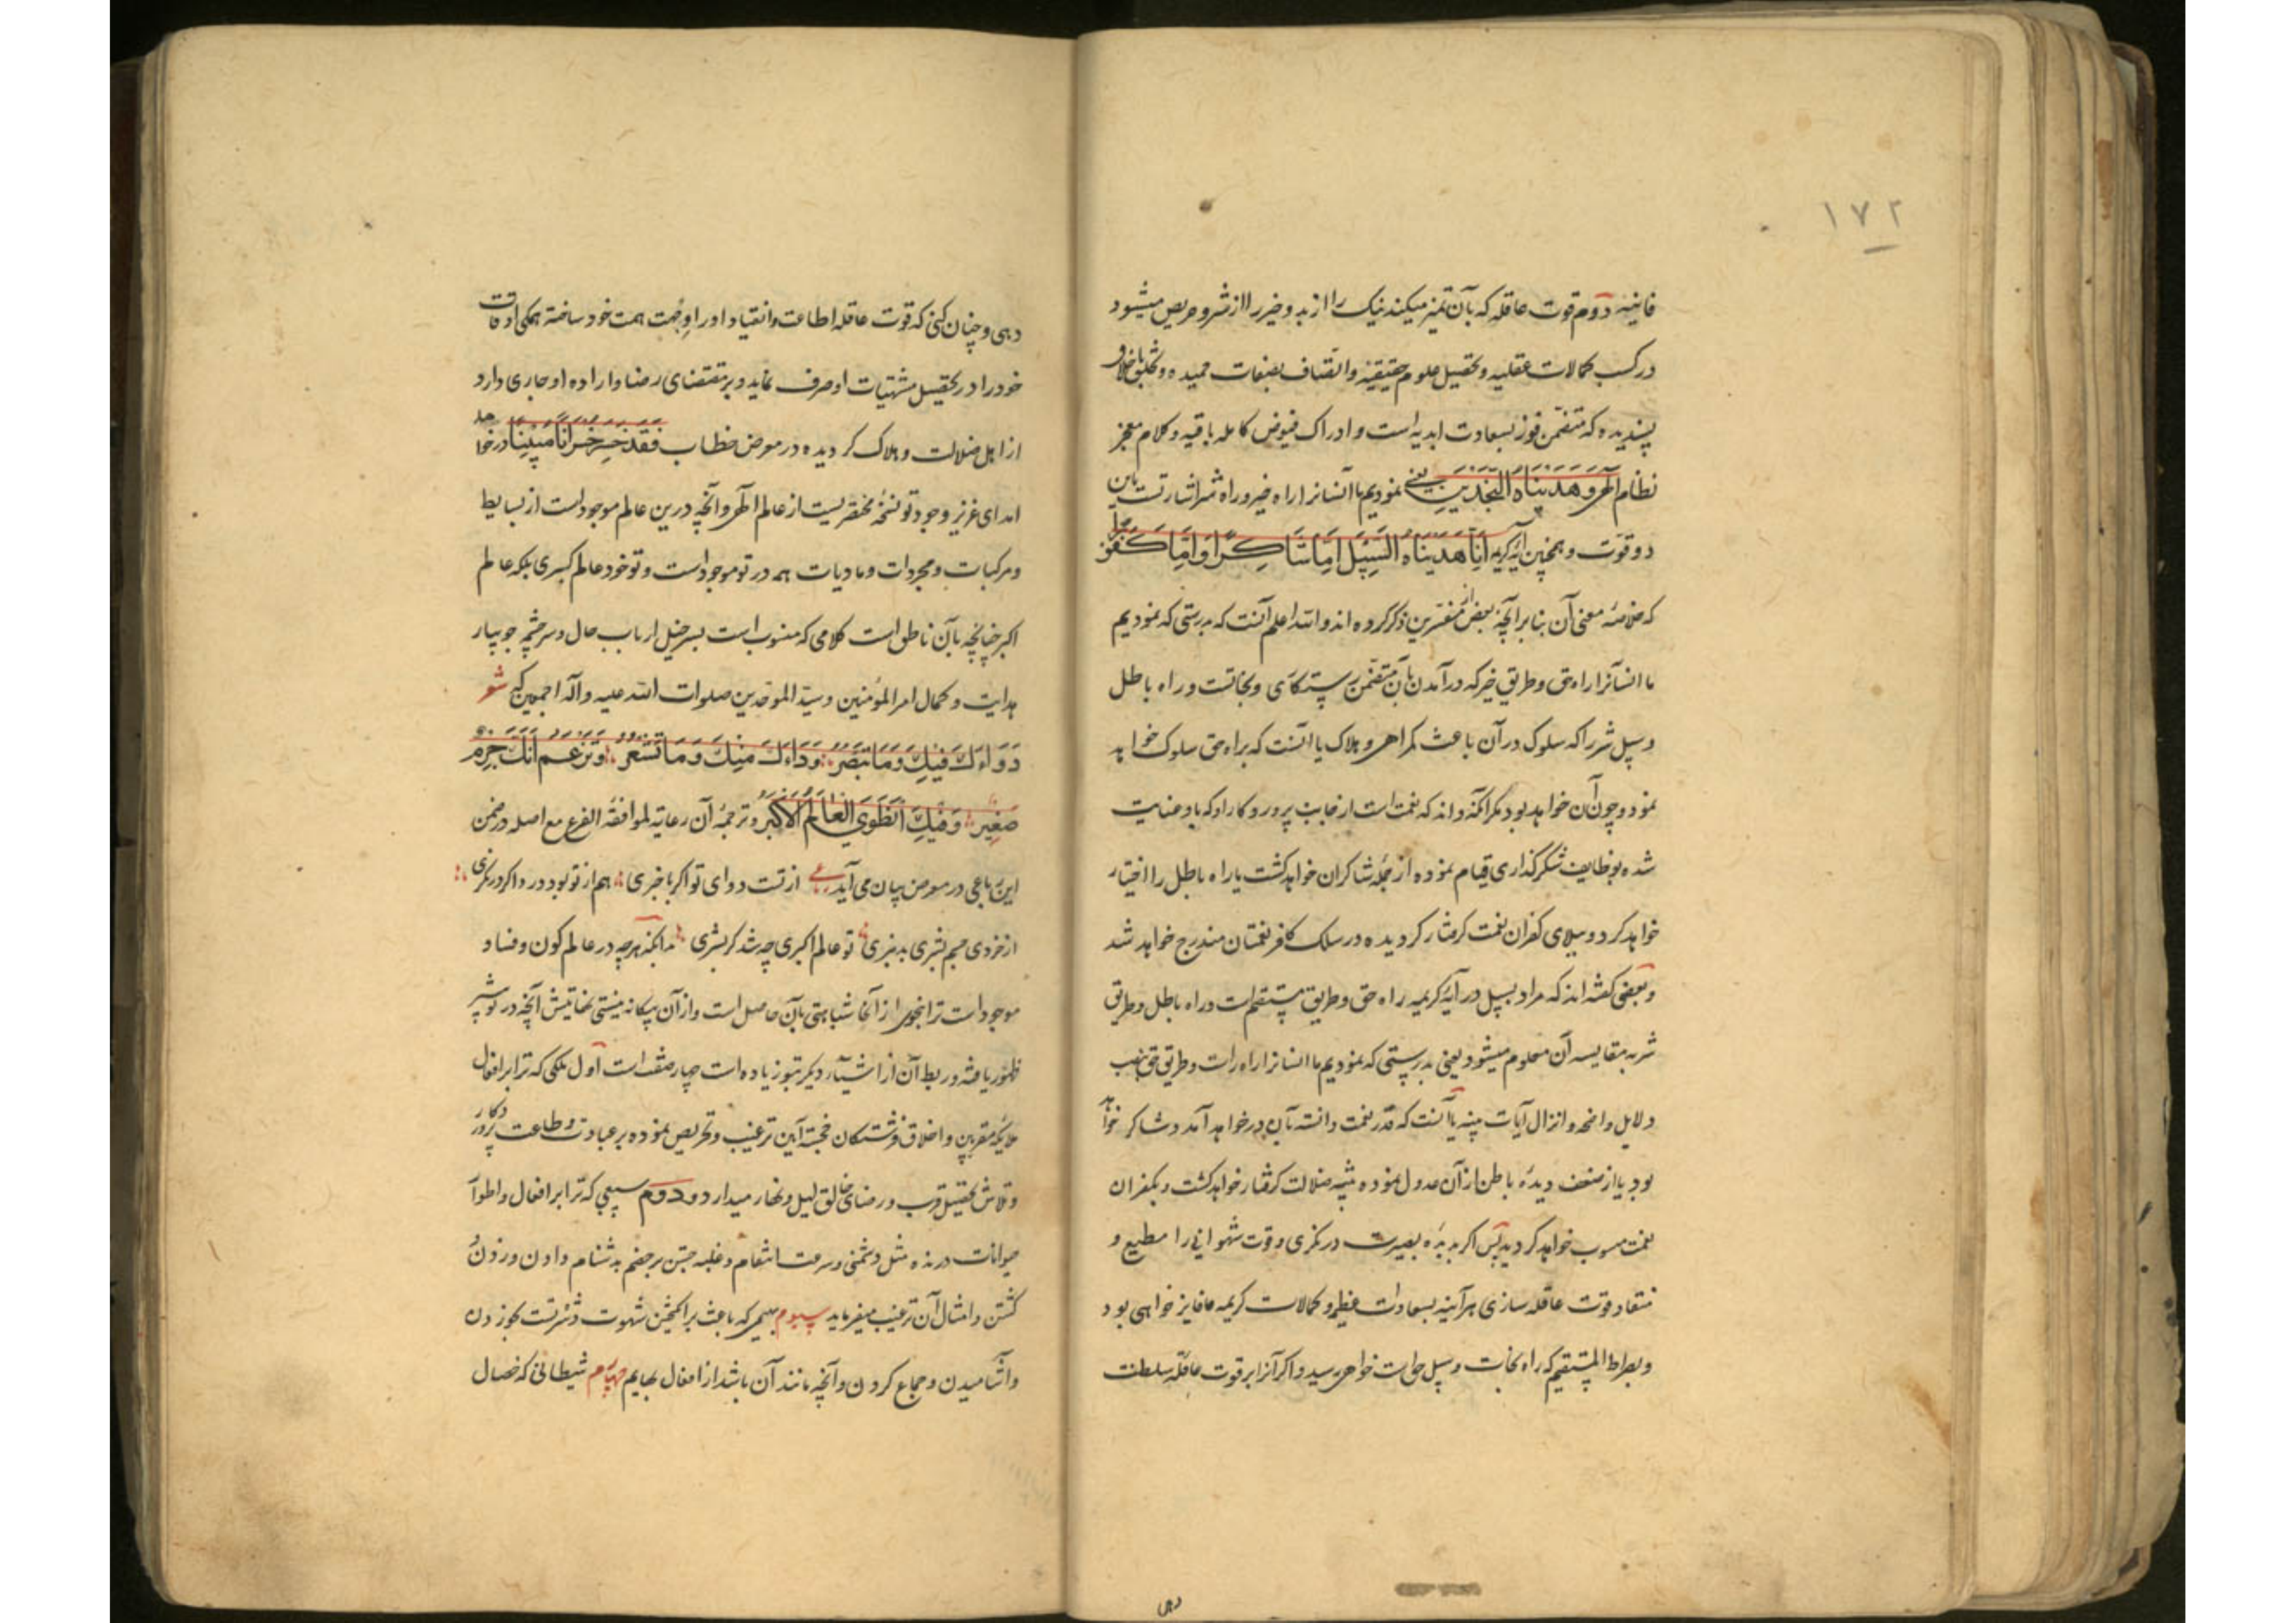 ۱۷۲
فانیه دوم قوت عاقله که بآن تمیز میکند نیک را از بد و خیر را از شر و حریص میشود
در کسب کمالات عقلیه و تحصیل علوم حقیقیه و اتصاف بصفات حمیده و تخلق باخلاق
پسندیده که متضمن فوز بسعادت ابدیه است و ادراک فیوض کامله باقیه و کلام معجز
نظام الهی وَهَدَیْنَاهُ النَّجْدَیْنِ یعنی نمودیم ما انسانرا راه خیر و راه شر اشارتست باین
دو قوت و همچنین آیه کریمه اِنَّا هَدَیْنَاهُ السَّبِیْلَ اِمَّا شَاکِرًا وَاِمَّا کَفُوْرًا
که خلاصه معنی آن بنا بر آنچه بعض از مفسرین ذکر کرده اند و الله اعلم آنست که بدرستی که نمودیم
ما انسانرا راه حق و طریق خیر که در آمدن بآن متضمن رستگاری و نجاتست و راه باطل
و سبیل شر را که سلوک در آن باعث گمراهی و هلاک یا آنست که براه حق سلوک خواهد
نمود و چون آن خواهد بود مگر آنکه داند که نعمت است از جانب پروردگار او که باو عنایت
شده بوظایف شکرگذاری قیام نموده از جمله شاکران خواهد گشت یا راه باطل را اختیار
خواهد کرد و ببلای کفران نعمت گرفتار گردیده در سلک کافر نعمتان مندرج خواهد شد
و بعضی گفته اند که مراد بسبیل در آیه کریمه راه حق و طریق مستقیم است و راه باطل و طریق
شر به مقایسه آن معلوم میشود یعنی بدرستی که نمودیم ما انسانرا راه راست و طریق حق بنصب
دلایل واضحه و انزال آیات بینه یا آنست که قدر نعمت دانسته بآن در خواهد آمد و شاکر خواهد
بود یا از ضعف دیده باطن از آن عدول نموده بتیه ضلالت گرفتار خواهد گشت و بکفران
نعمت منسوب خواهد گردید پس اگر بدیده بصیرت در نگری و قوت شهوانی را مطیع و
منقاد قوت عاقله سازی هر آینه بسعادات عظمی و کمالات کریمه فایز خواهی بود
و بصراط المستقیم که راه نجات و سبیل حیات خواهی رسید و اگر آنرا بر قوت عاقله سلطنت
دهی
دهی و چنان کنی که قوت عاقله اطاعت و انقیاد او را وجهت همت خود ساخته همگی اوقات
خود را در تحصیل مشتهیات او صرف نماید و بر مقتضای رضا و اراده او جاری دارد
از اهل ضلالت و هلاک گردیده در معرض خطاب فَقَدْ خَسِرَ خُسْرَانًا مُبِیْنًا در خواهد
امد ای عزیز وجود تو نسخه مختصریست از عالم الهی و آنچه درین عالم موجود است از بسایط
و مرکبات و مجردات و مادیات همه در تو موجود است و تو خود عالم کبری بلکه عالم
اکبر چنانچه بآن ناطق است کلامی که منسوب است بسر خیل ارباب حال و سر چشمه جویبار
هدایت و کمال امیر المؤمنین و سید الموحدین صلوات الله علیه و آله اجمعین که شعر
دَوَاءُكَ فِیْكَ وَمَا تُبْصِرُ وَدَاءُكَ مِنْكَ وَمَا تَشْعُرُ وَتَزْعَمُ اَنَّكَ جِرْمٌ
صَغِیْرٌ وَفِیْكَ انْطَوَی الْعَالَمُ الْاَکْبَرُ و ترجمه آن رعایة لموافقة الفرع مع اصله در ضمن
این رباعی در معرض بیان می آید رباعی از تست دوای تو اگر با خبری هم از تو بود درد اگر در نگری
از خردی جسم بشری بد نبری تو عالم اکبری چه شد گر بشری بدانکه هر چه در عالم کون و فساد
موجود است ترا بنحوی از انحا شباهتی بآن حاصل است و از آن بیگانه نیستی نهایتش آنچه در تو بیشتر
ظهور یافته و ربط آن از اشیاء دیگر بتو زیاده است چهار صفت است اول ملکی که ترا بر افعال
ملایکه مقربین و اخلاق فرشتگان خجسته آیین ترغیب و تحریص نموده بر عبادت و طاعت پروردگار
و تلاش تحصیل قرب و رضای خالق لیل و نهار میدارد و دوم سبعی که ترا بر افعال و اطوار
حیوانات درنده مثل دشمنی و سرعت انتقام و غلبه جستن بر خصم بدشنام دادن و زدن و
کشتن و امثال آن ترغیب میفرماید سیوم بهیمی که باعث بر انگیختن شهوت و شره تست بخوردن
و آشامیدن و جماع کردن و آنچه مانند آن باشد از افعال بهایم چهارم شیطانی که خصال